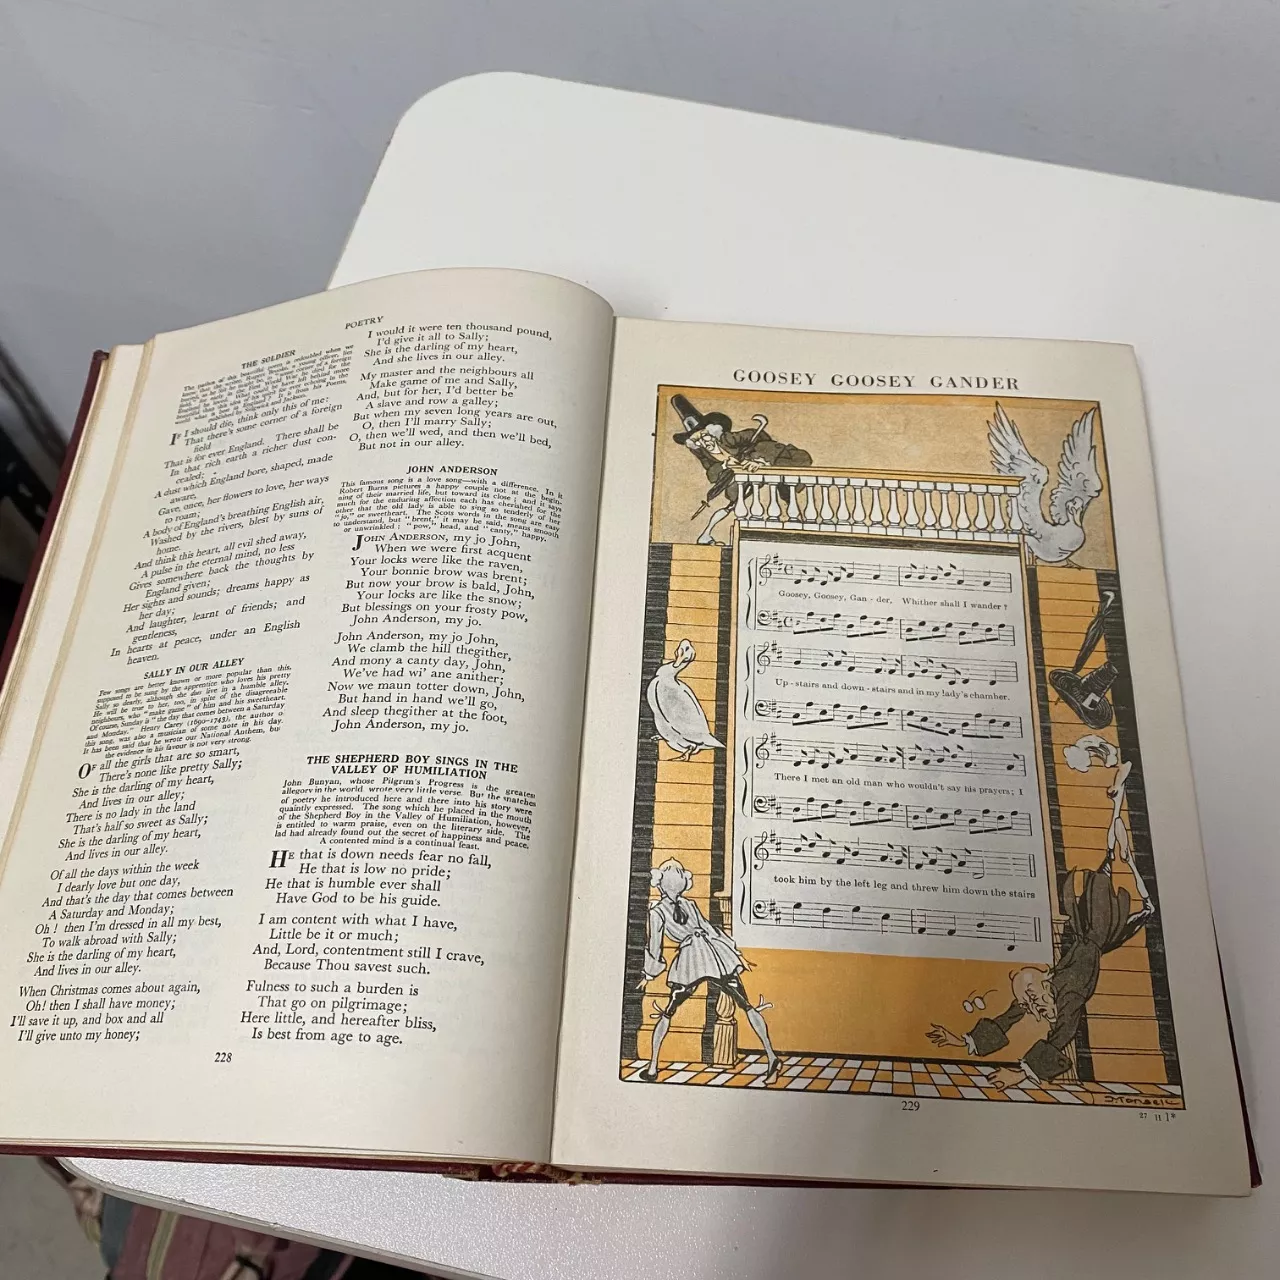 POETRY
THE SOLDIER
The pathos of this beautiful poem is redoubled when we
published by Sidgwick and Jackson.
IF I should die, think only this of me:
That there's some corner of a foreign
field
That is for ever England. There shall be
In that rich earth a richer dust con-
cealed;
A dust which England bore, shaped, made
aware,
Gave, once, her flowers to love, her ways
to roam;
A body of England's breathing English air,
Washed by the rivers, blest by suns of
home.
And think this heart, all evil shed away,
A pulse in the eternal mind, no less
Gives somewhere back the thoughts by
England given;
Her sights and sounds; dreams happy as
her day;
And laughter, learnt of friends; and
gentleness,
In hearts at peace, under an English
heaven.
SALLY IN OUR ALLEY
Few songs are better known or more popular than this,
supposed to be sung by the apprentice who loves his pretty
Sally so dearly, although she does live in a humble alley.
He will be true to her, too, in spite of the disagreeable
neighbours, who "make game" of him and his sweetheart.
Of course, Sunday is "the day that comes between a Saturday
and Monday." Henry Carey (1690-1743), the author of
this song, was also a musician of some note in his day.
It has been said that he wrote our National Anthem, but
the evidence in his favour is not very strong.
OF all the girls that are so smart,
There's none like pretty Sally;
She is the darling of my heart,
And lives in our alley;
There is no lady in the land
That's half so sweet as Sally;
She is the darling of my heart,
And lives in our alley.
Of all the days within the week
I dearly love but one day,
And that's the day that comes between
A Saturday and Monday;
Oh! then I'm dressed in all my best,
To walk abroad with Sally;
She is the darling of my heart,
And lives in our alley.
When Christmas comes about again,
Oh! then I shall have money;
I'll save it up, and box and all
I'll give unto my honey;
I would it were ten thousand pound,
I'd give it all to Sally;
She is the darling of my heart,
And she lives in our alley.
My master and the neighbours all
Make game of me and Sally,
And, but for her, I'd better be
A slave and row a galley;
But when my seven long years are out,
O, then I'll marry Sally;
O, then we'll wed, and then we'll bed,
But not in our alley.
JOHN ANDERSON
This famous song is a love song—with a difference. In it
Robert Burns pictures a happy couple not at the begin-
ning of their married life, but toward its close; and it says
much for the enduring affection each has cherished for the
other that the old lady is able to sing so tenderly of her
"jo," or sweetheart. The Scots words in the song are easy
to understand, but "brent," it may be said, means smooth
or unwrinkled; "pow," head, and "canty," happy.
JOHN ANDERSON, my jo John,
When we were first acquent
Your locks were like the raven,
Your bonnie brow was brent;
But now your brow is bald, John,
Your locks are like the snow;
But blessings on your frosty pow,
John Anderson, my jo.
John Anderson, my jo John,
We clamb the hill thegither,
And mony a canty day, John,
We've had wi' ane anither;
Now we maun totter down, John,
But hand in hand we'll go,
And sleep thegither at the foot,
John Anderson, my jo.
THE SHEPHERD BOY SINGS IN THE
VALLEY OF HUMILIATION
John Bunyan, whose Pilgrim's Progress is the greatest
allegory in the world, wrote very little verse. But the snatches
of poetry he introduced here and there into his story were
quaintly expressed. The song which he placed in the mouth
of the Shepherd Boy in the Valley of Humiliation, however,
is entitled to warm praise, even on the literary side. The
lad had already found out the secret of happiness and peace.
A contented mind is a continual feast.
HE that is down needs fear no fall,
He that is low no pride;
He that is humble ever shall
Have God to be his guide.
I am content with what I have,
Little be it or much;
And, Lord, contentment still I crave,
Because Thou savest such.
Fulness to such a burden is
That go on pilgrimage;
Here little, and hereafter bliss,
Is best from age to age.
228
GOOSEY GOOSEY GANDER
Goosey, Goosey, Gan - der, Whither shall I wander?
Up - stairs and down - stairs and in my lady's chamber.
There I met an old man who wouldn't say his prayers; I
took him by the left leg and threw him down the stairs
229
27 11 1*